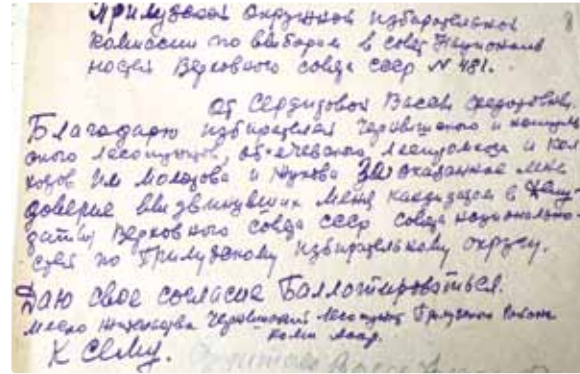 Прилузской окружной избирательной
комиссии по выборам в совет Националь
ностей Верховного совета ссср № 481.
от Сердитовой Вассы
Благодарю избирателей и
лесопунктов, и кол
хозов им Молотова и Жукова За оказанное мне
доверие выдвинувших меня кандидатом в депу
даты Верховного совета ссср совета национально
стей по Прилузскому избирательному округу.
Даю свое согласие Баллотироваться.
место жительства лесопункт Прилузского Района
коми Асср.
К сему.